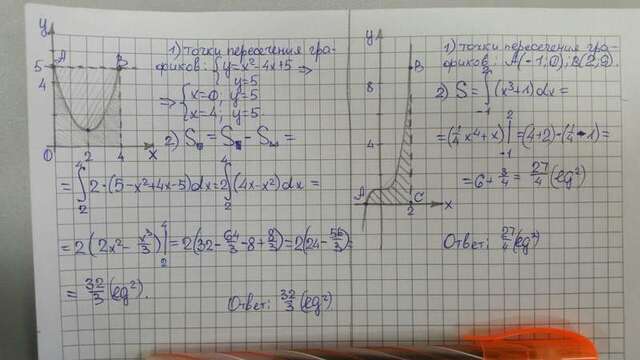 1) точки пересечения гра-
фиков: { y=x²-4x+5 =>
y=5
=> { x=0, y=5
x=4, y=5.
2) S = S - S =
= ∫₂⁴ 2·(5-x²+4x-5)dx=2∫₂⁴(4x-x²)dx=
= 2(2x²-x³/3)|₂⁴=2(32-64/3-8+8/3)=2(24-56/3)=
= 32/3 (ед²).
Ответ: 32/3 (ед²)
y
5
4
A
B
0
2
4
x
1) точки пересечения гра-
фиков: A(-1;0); B(2;9).
2) S=∫₋₁²(x³+1)dx=
=(1/4x⁴+x)|₋₁²=(4+2)-(1/4-1)=
=6+3/4=27/4 (ед²)
Ответ: 27/4 (ед²)
y
8
4
B
A
C
2
x